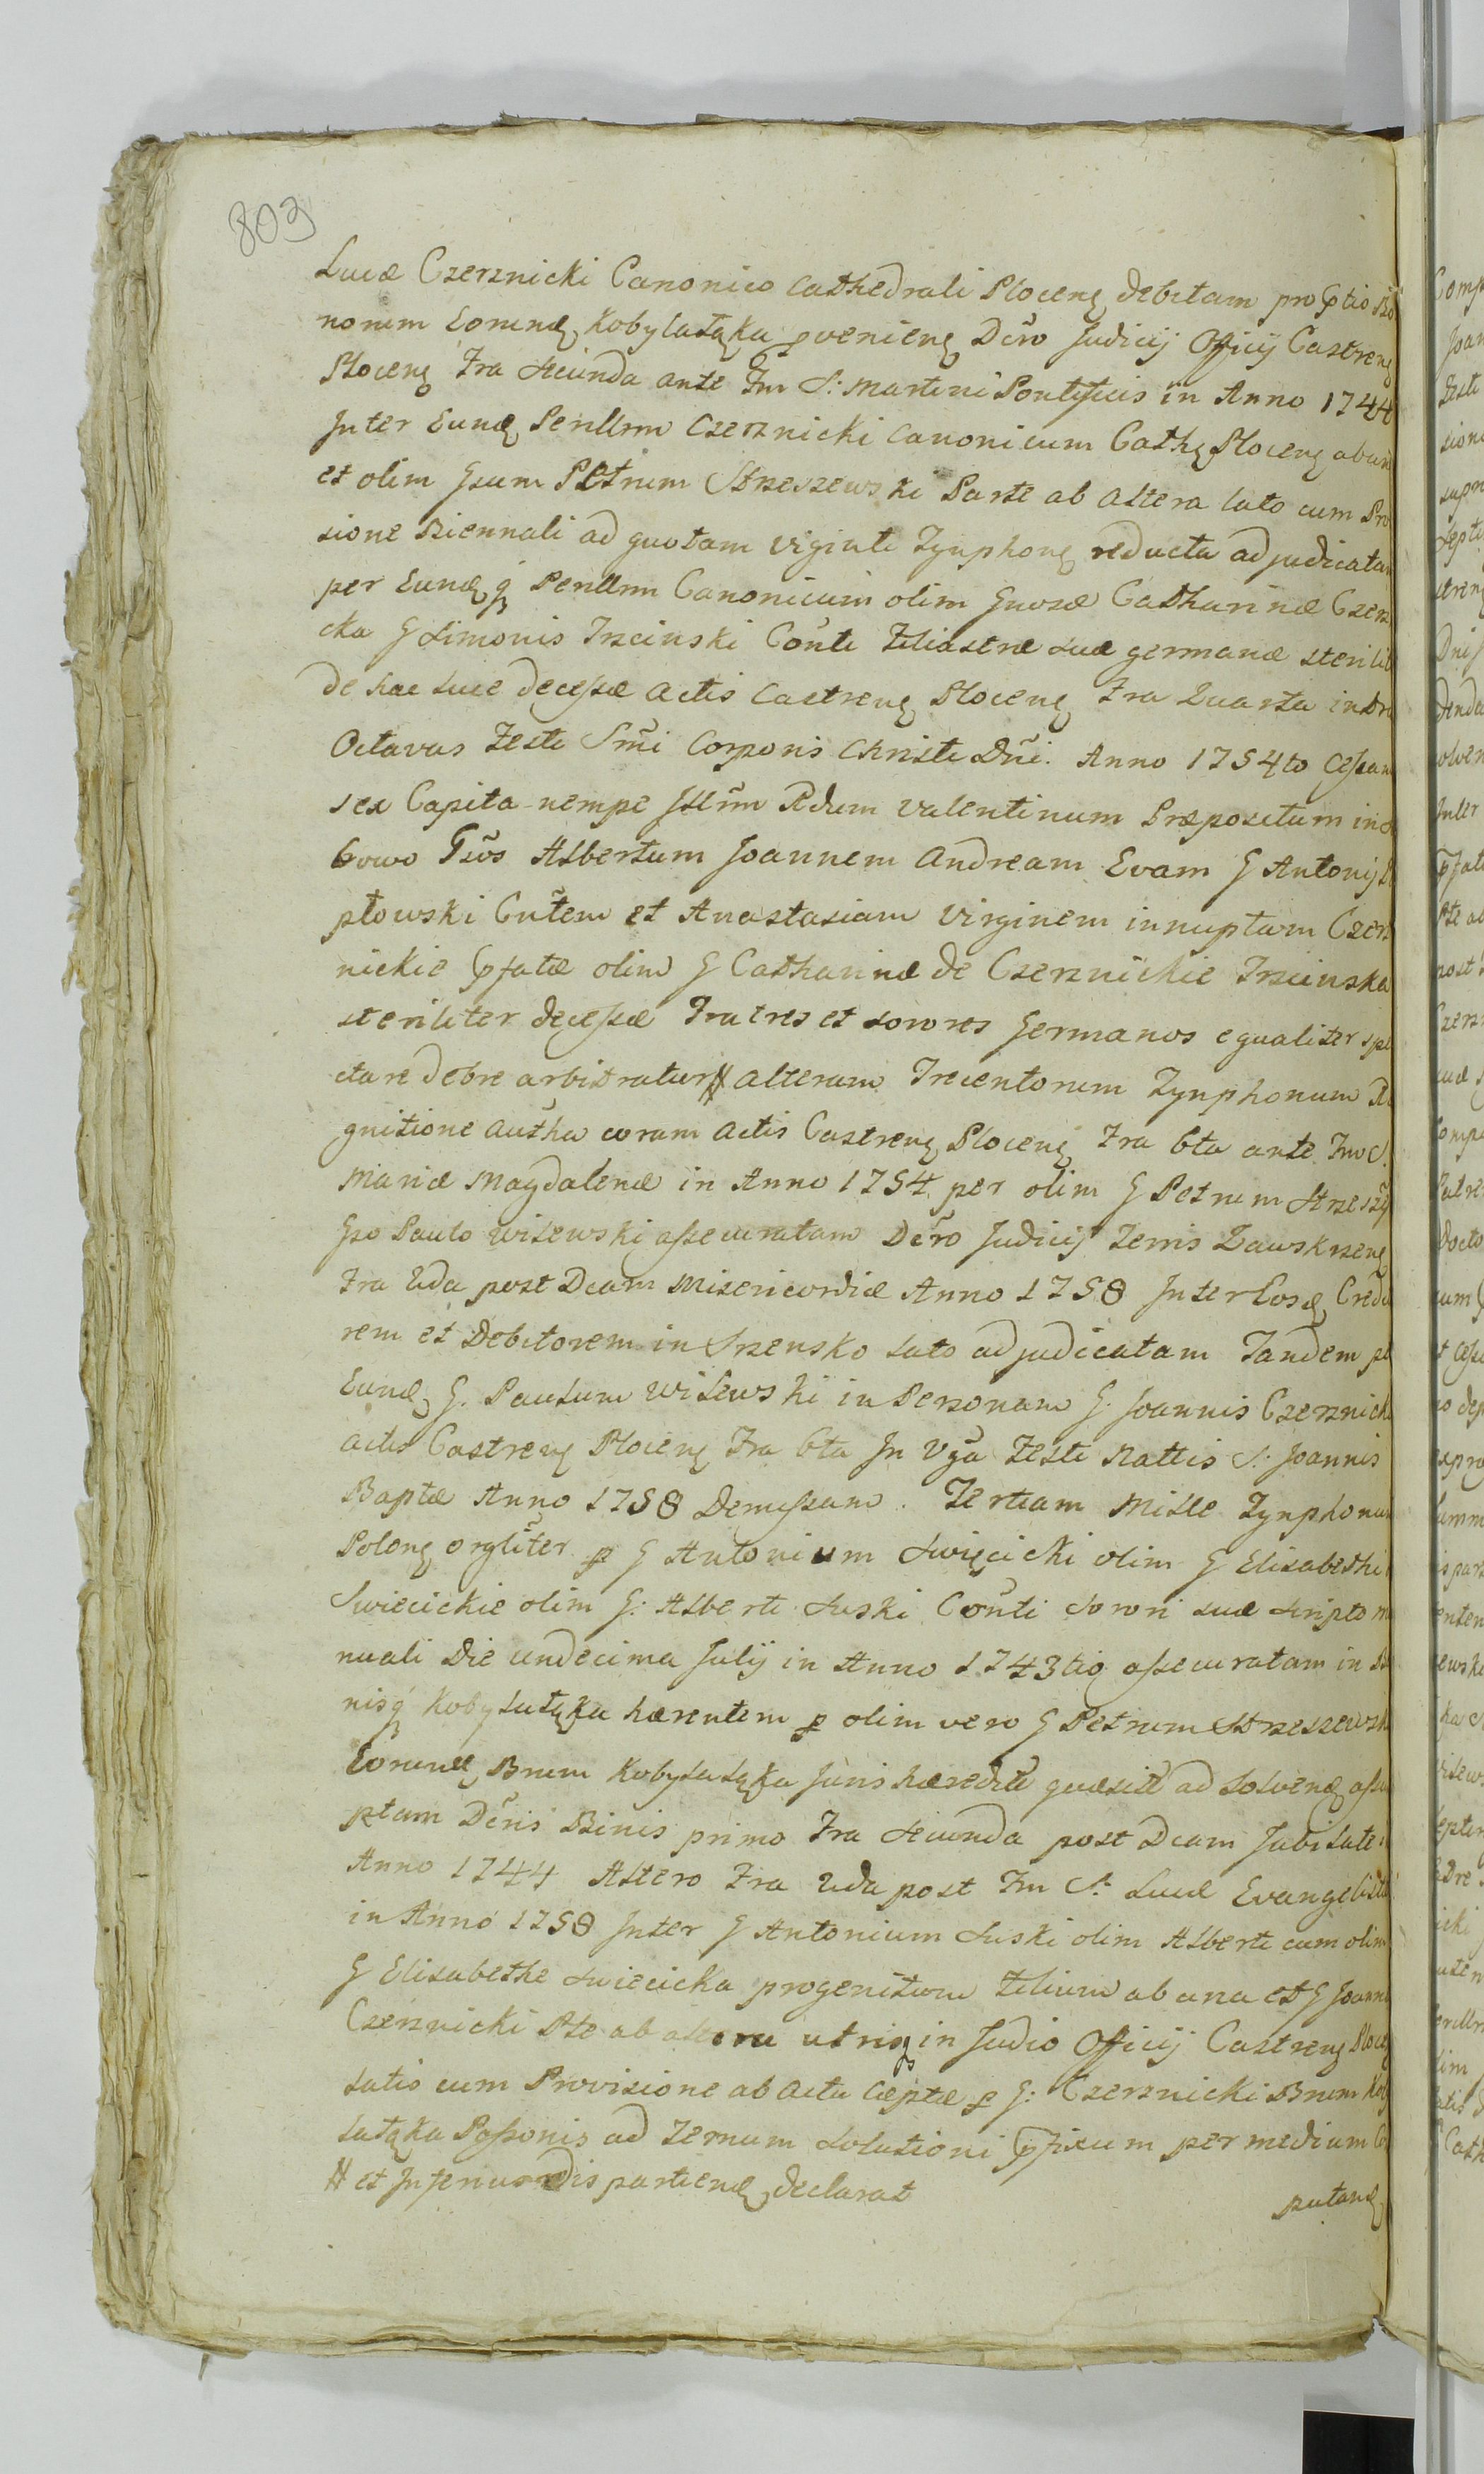 803
Lucæ Czerznicki Canonico Cathedrali Ploceng debitam pro ptio Bo
norum Eorundę Kobylałąka pveniens Dcro Judicij Officij Castreng
Ploceng Fra Secunda ante Fm S: Martini Pontificis in Anno 1744
Inter Eundę Perillrm Czerznicki Canonicum Cathę Ploceng ab un
et olim Gsum Petrum Strzeszewski Parte ab altera lato cum Pro
sione Biennali ad quotam viginti Zynphong reducta adjudicatam
per Eundę q Perillrm Canonicum olim Gnosæ Catharinæ Czerz
cka G Simonis Trzcinski Conti Filiastræ suæ germanæ sterilit
de hac luce decessæ actis Castreng Ploceng Fra Quarta intra
Octavas Festi Smi Corporis Christi Dni. Anno 1754to Cessam
sex Capita nempe Illrm Rdum Valentinum Præpositum in
bowo Gsos Albertum Joannem Andream Evam G Antonij
płowski Cntem et Anastasiam Virginem innuptam Czerz
nickie pfatæ olim G Catharinæ de Czerznickie Trzcinska
steriliter decessæ Fratres et sorores Germanos equaliter spe
ctare debre arbitratur # alteram Trecentorum Zynphonum Re
gnitione autha coram Actis Castreng Ploceng Fra 6ta ante Fm S.
Mariæ Magdalenæ in Anno 1754 per olim G Petrum Strzeszew
Gso Paulo Wilewski assecuratam Dcro Judicij Terris Zawskrzeng
Fra 2da post Dcam Misericordiæ Anno 1758 Inter Eosdę Credi
rem et Debitorem in Srzensko lato adjudicatam Tandem p
Eundę G. Paulum Wilewski in Personam G. Joannis Czerznick
actis Castreng Ploceng Fra 6ta In Vgia Festi Nattis S: Joannis
Baptæ Anno 1758 Demissam. Tertiam Mille Zynphonum
Polong orgliter p G Antonium Swięcicki olim G Elisabethi
Swiecickie olim G: Alberti Suski Conti Sorori suæ Scripto m
nuali Die undecima Julij in Anno 1743tio assecuratam in B
nisq Kobylałąka hærentem p olim vero G Petrum Strzeszewsk
Eorundę Bnum Kobylałąka Juris hæredit quæsit ad solvendę assu
ptam Dcris Binis primo Fra Secunda post Dcam Jubilate
Anno 1744 Altero Fra 2da post Fm S. Lucæ Evangelistæ
in Anno 1758 Inter G Antonium Suski olim Alberti cum olim
G Elisabethe Swiecicka progenitum Filium ab una et G Joann
Czerznicki Pte ab altera utrisq in Judio Officij Castreng Ploceng
latis cum Provisione ab Actu Cæptæ p G: Czerznicki Bnum Koby
łałąka Possonis ad Ternum Solutioni pfixum per medium Co
# et Inferius dispartiendę declarat
putandę